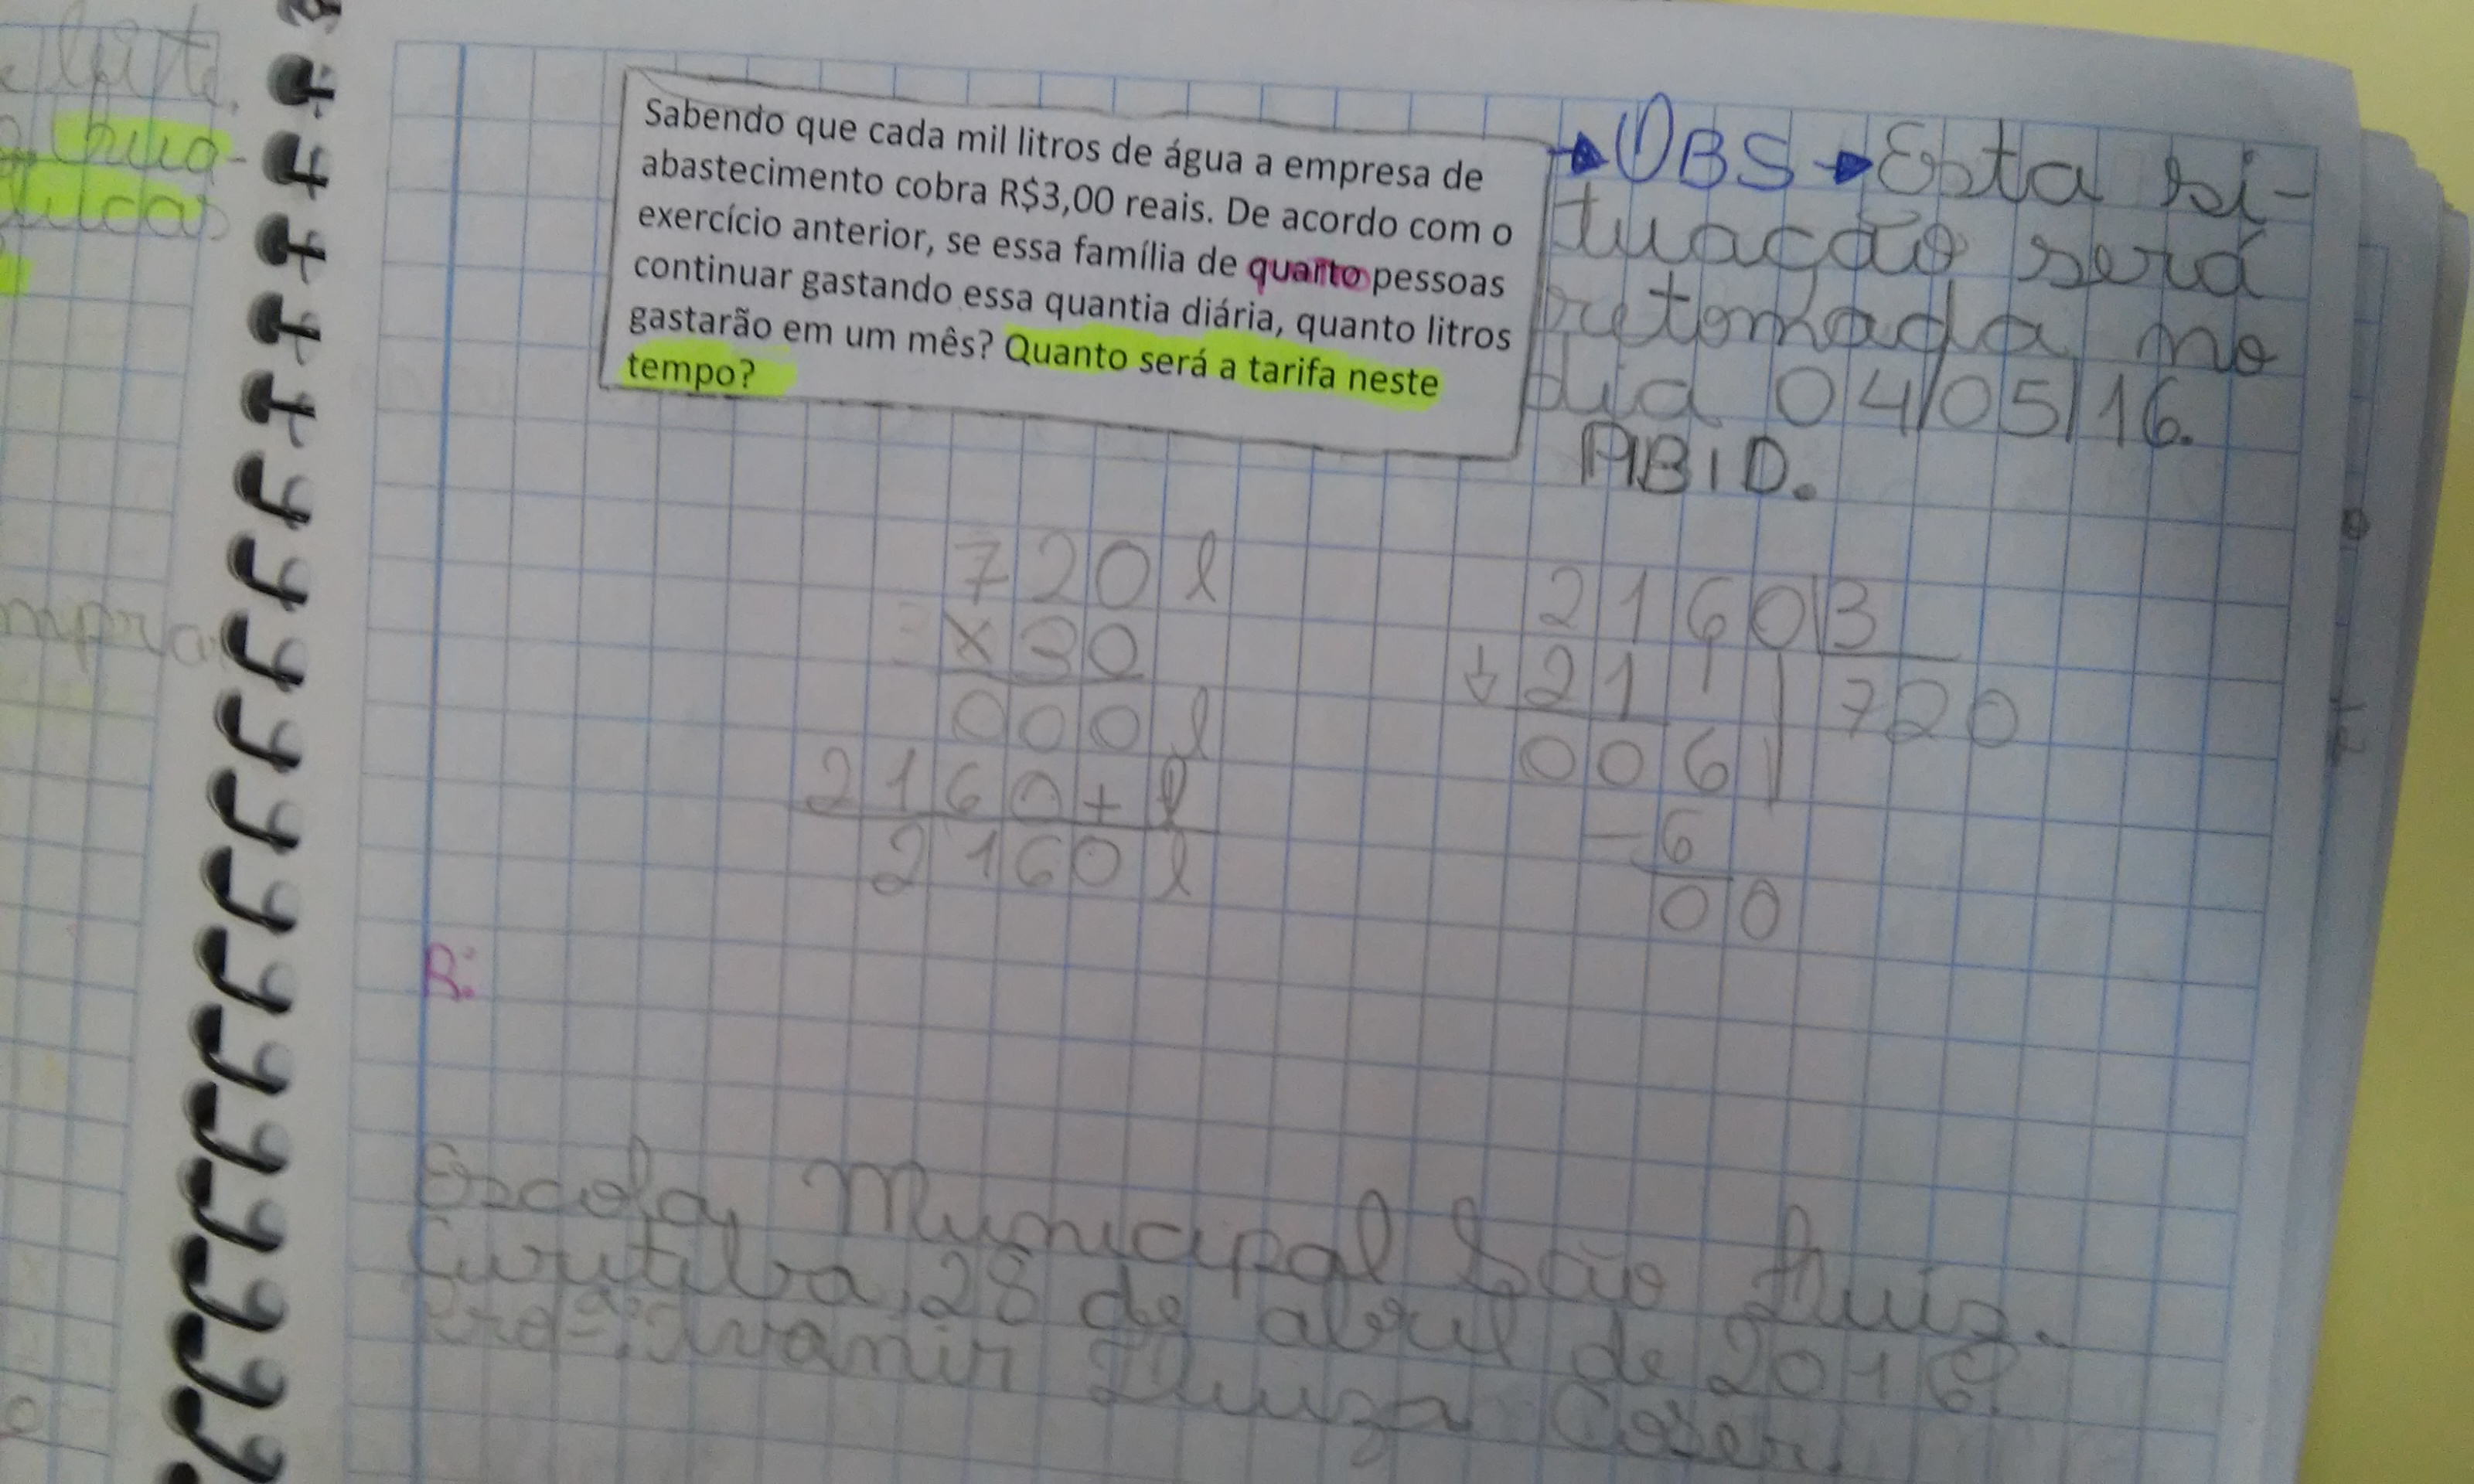 Sabendo que cada mil litros de água a empresa de
abastecimento cobra R$3,00 reais. De acordo com o
exercício anterior, se essa família de quarto pessoas
continuar gastando essa quantia diária, quanto litros
gastarão em um mês? Quanto será a tarifa neste
tempo?
OBS Esta si-
tuação será
retomada no
dia 04/05/16.
PIBID.
720 l
x 30
000 l
2160+ l
2160 l
2160 3
21 720
006
-6
00
R:
Escola Municipal São Luiz.
Curitiba, 28 de abril de 2016.
Profª: Ivanir Luiza Coser.